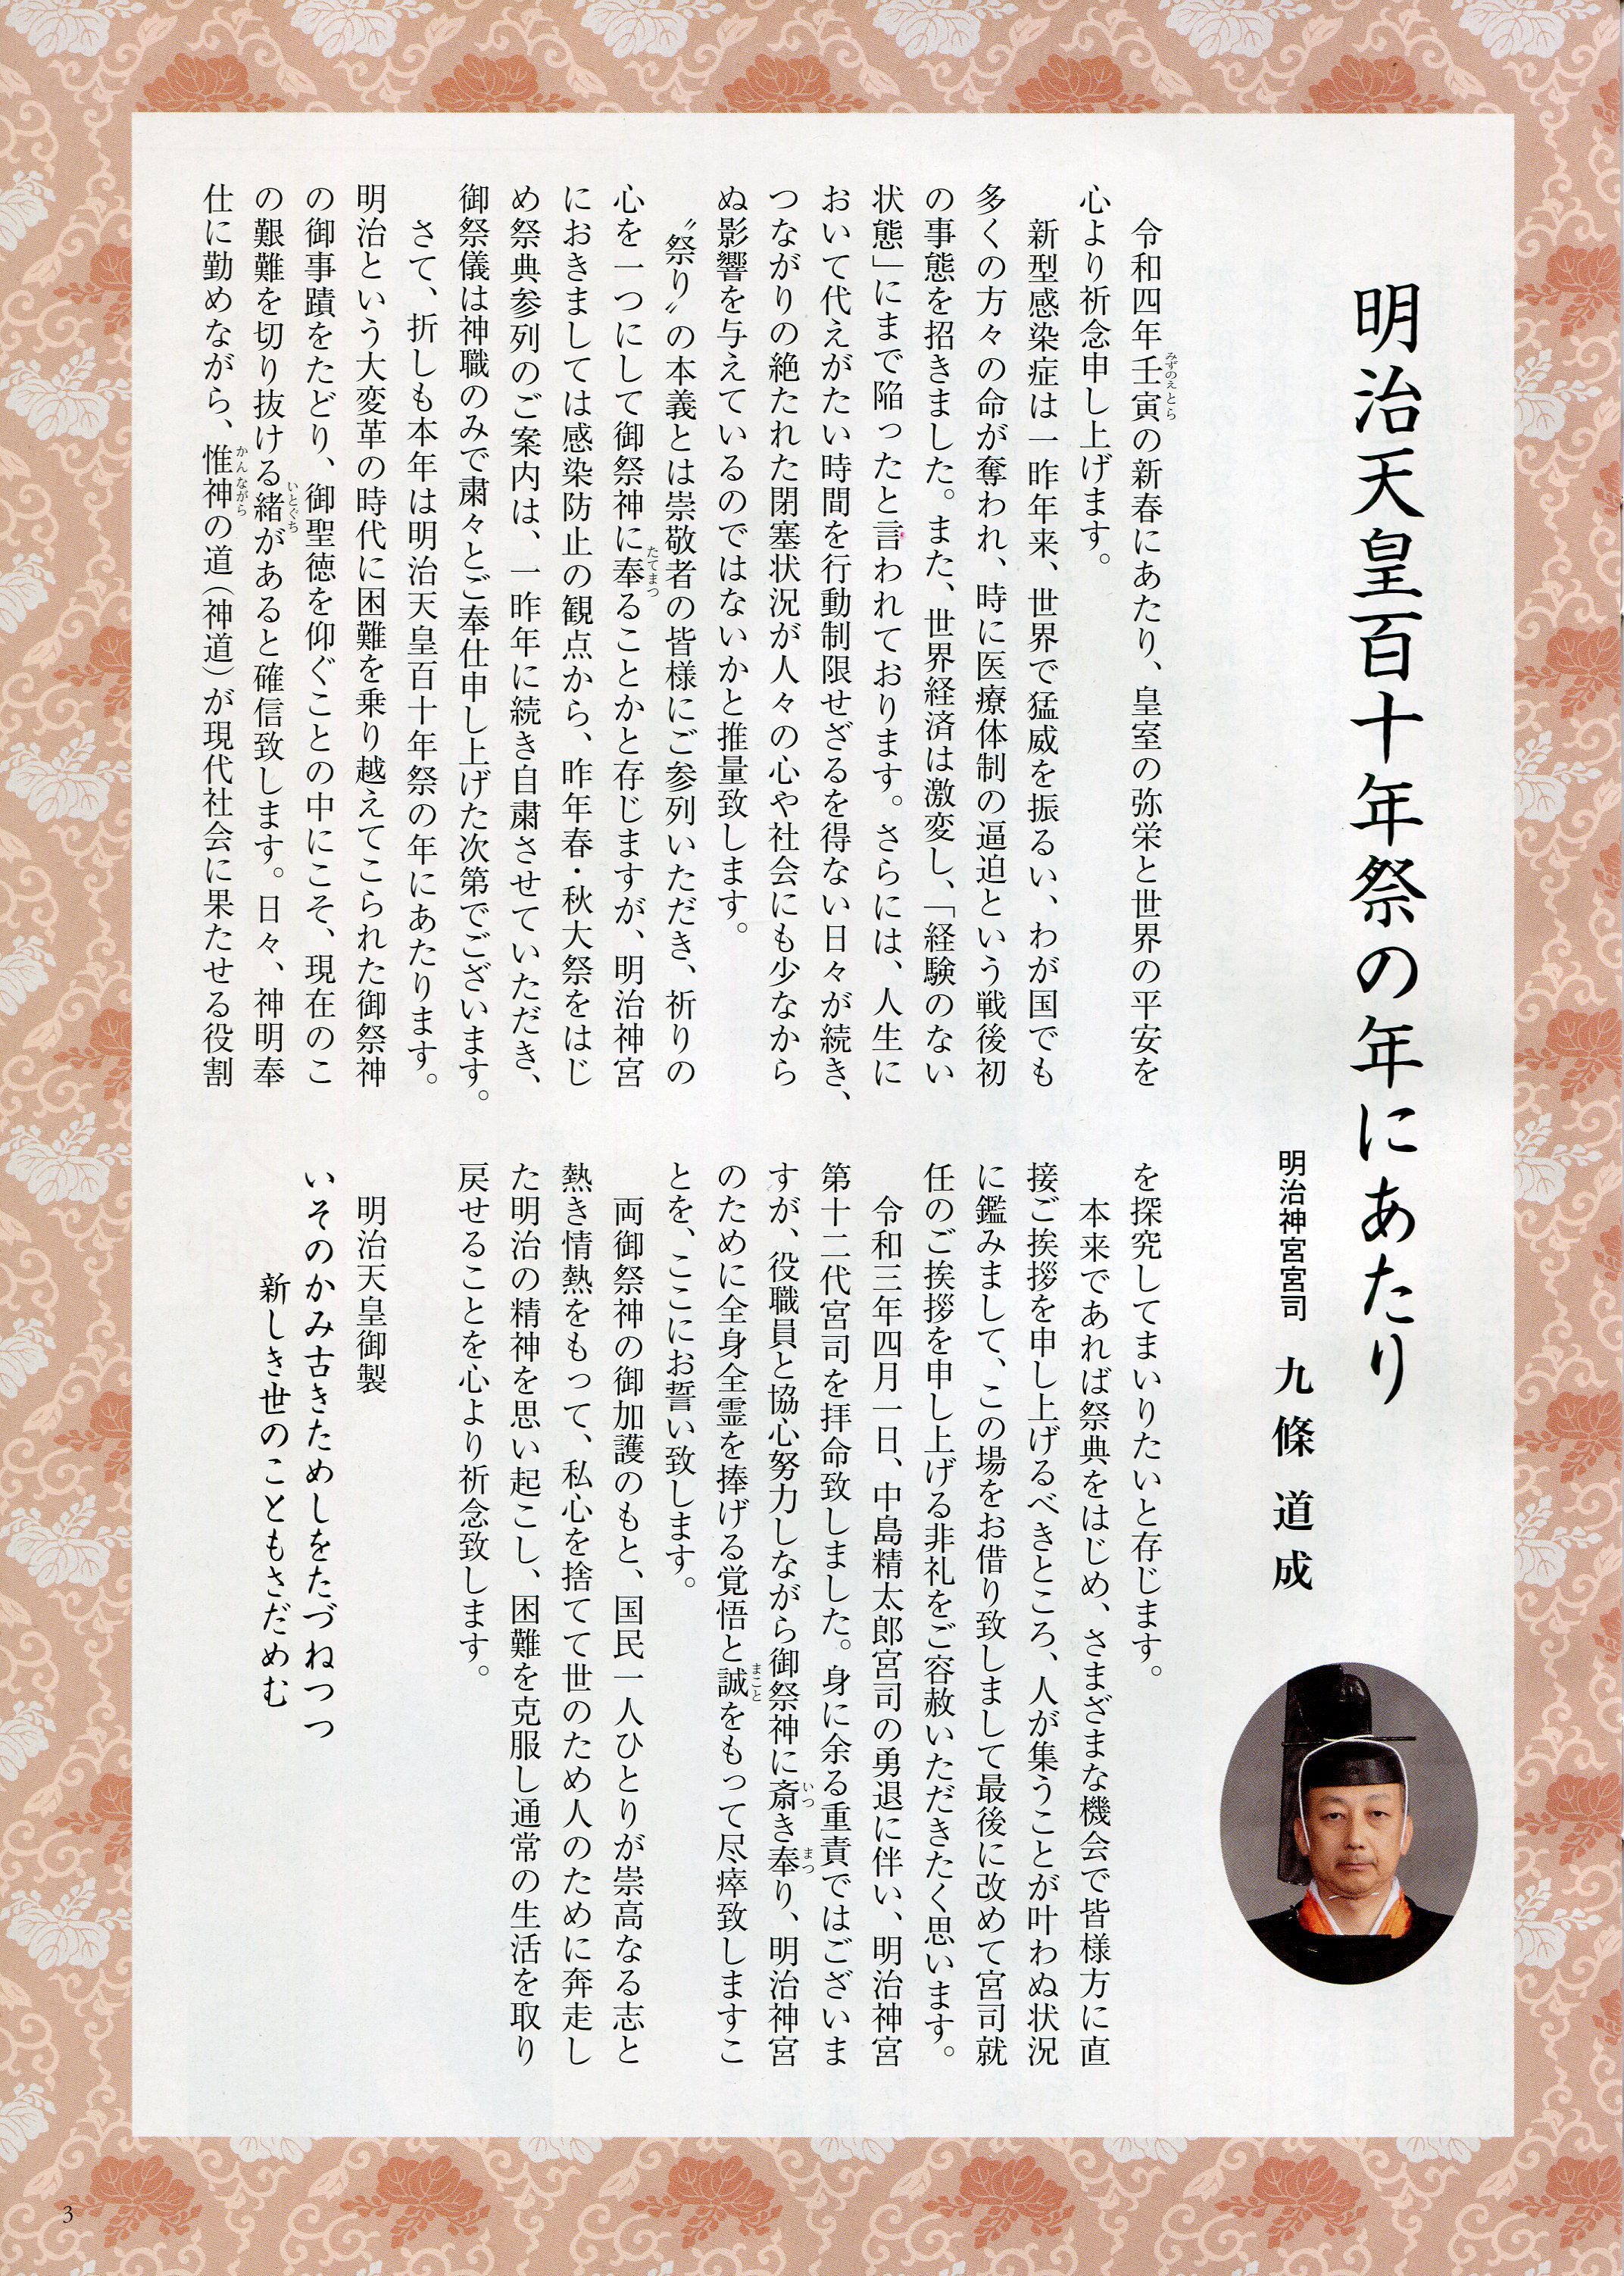 明治天皇百十年祭の年にあたり
明治神宮宮司 九條道成
令和四年壬寅の新春にあたり、皇室の弥栄と世界の平安を
みずのえとら
心より祈念申し上げます。
新型感染症は一昨年来、世界で猛威を振るい、わが国でも
多くの方々の命が奪われ、時に医療体制の逼迫という戦後初
の事態を招きました。また、世界経済は激変し、「経験のない
状態」にまで陥ったと言われております。さらには、人生に
おいて代えがたい時間を行動制限せざるを得ない日々が続き、
つながりの絶たれた閉塞状況が人々の心や社会にも少なから
ぬ影響を与えているのではないかと推量致します。
〝祭り〟の本義とは崇敬者の皆様にご参列いただき、祈りの
心を一つにして御祭神に奉ることかと存じますが、明治神宮
たてまつ
におきましては感染防止の観点から、昨年春・秋大祭をはじ
め祭典参列のご案内は、一昨年に続き自粛させていただき、
御祭儀は神職のみで粛々とご奉仕申し上げた次第でございます。
さて、折しも本年は明治天皇百十年祭の年にあたります。
明治という大変革の時代に困難を乗り越えてこられた御祭神
の御事蹟をたどり、御聖徳を仰ぐことの中にこそ、現在のこ
の艱難を切り抜ける緒があると確信致します。日々、神明奉
いとぐち
仕に勤めながら、惟神の道（神道）が現代社会に果たせる役割
かんながら
を探究してまいりたいと存じます。
本来であれば祭典をはじめ、さまざまな機会で皆様方に直
接ご挨拶を申し上げるべきところ、人が集うことが叶わぬ状況
に鑑みまして、この場をお借り致しまして最後に改めて宮司就
任のご挨拶を申し上げる非礼をご容赦いただきたく思います。
令和三年四月一日、中島精太郎宮司の勇退に伴い、明治神宮
第十二代宮司を拝命致しました。身に余る重責ではございま
すが、役職員と協心努力しながら御祭神に斎き奉り、明治神宮
いつ まつ
のために全身全霊を捧げる覚悟と誠をもって尽瘁致しますこ
まこと
とを、ここにお誓い致します。
両御祭神の御加護のもと、国民一人ひとりが崇高なる志と
熱き情熱をもって、私心を捨てて世のため人のために奔走し
た明治の精神を思い起こし、困難を克服し通常の生活を取り
戻せることを心より祈念致します。
明治天皇御製
いそのかみ古きためしをたづねつつ
新しき世のこともさだめむ
3